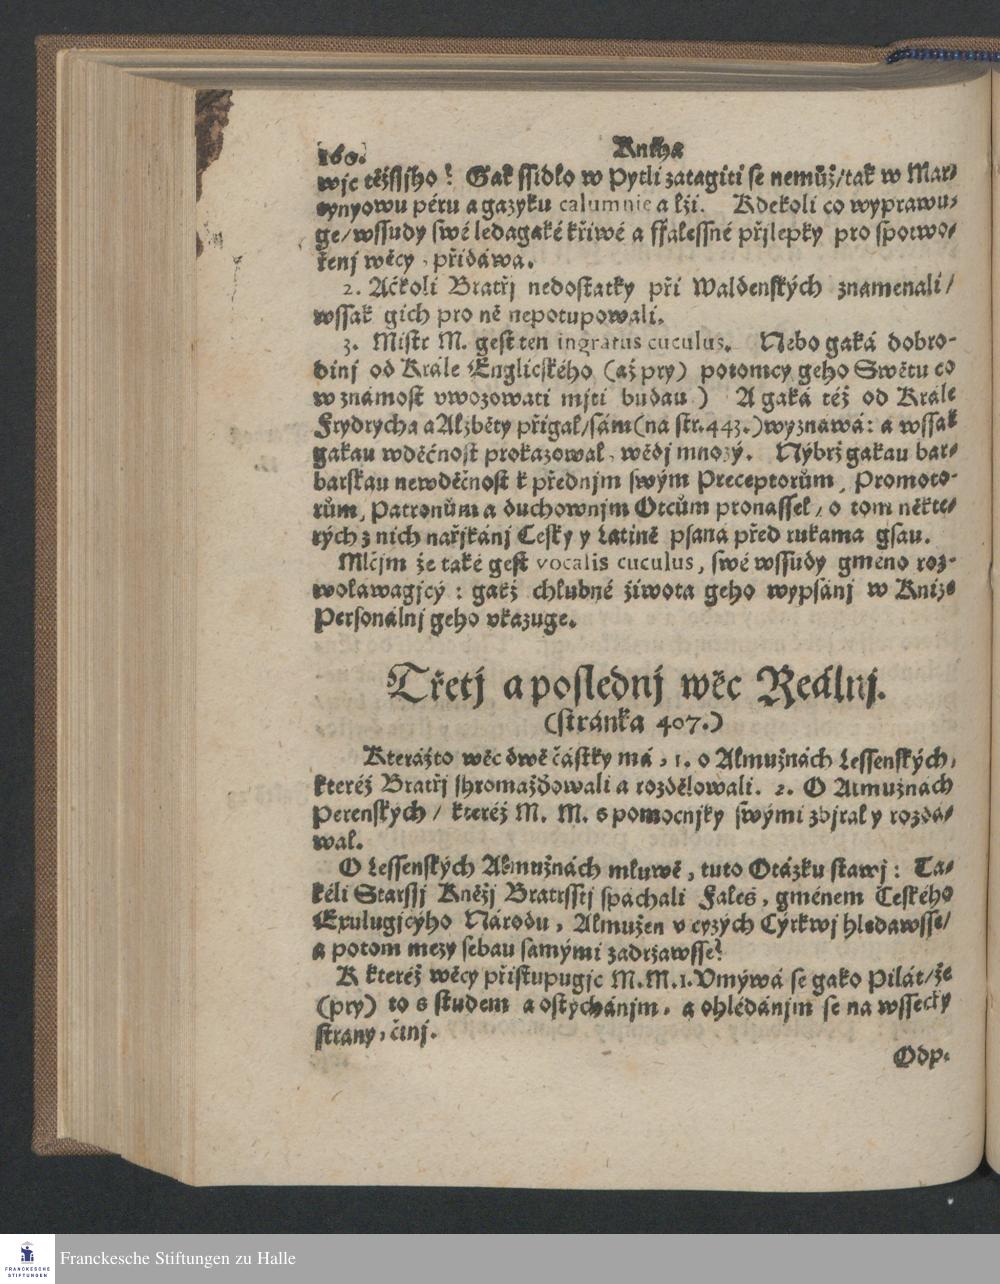 160. Kniha
wjc těžssjho? Gak ssidło w Pytli zatagiti se nemůž/tak w Mar-
tynyowu péru a gazyku calumnie a lži. Kdekoli co wyprawu-
ge/wssudy swé ledagaké křiwé a ffalessné přjlepky pro spotwo-
řenj wěcy, přidáwa.
2. Ačkoli Bratřj nedostatky při Waldenských znamenali/
wssak gich pro ně nepotupowali.
3. Mistr M. gest ten ingratus cuculus. Nebo gaká dobro-
dinj od Krále Englického (až pry) potomcy geho Swětu co
w známost vwozowati mjti budau) A gaká též od Krále
Frydrycha a Alžběty přigal/sám(na str.443.)wyznawá: a wssak
gakau wděčnost prokazowal, wědj mnozý. Nýbrž gakau bar-
barskau newděčnost k přednjm swým Preceptorům, Promoto-
rům, Patronům a duchownjm Otcům pronassel, o tom někte-
rých z nich nařjkánj Česky y Latině psana před rukama gsau.
Mlčjm že také gest vocalis cuculus, swé wssudy gméno roz-
wolawagjcý: gakž chlubné žiwota geho wypsánj w Knize
Personálnj geho vkazuge.
Třetj a poslednj wěc Reálnj.
(stránka 407.)
Kterážto wěc dwě částky má, 1. o Almužnách Lessenských,
kteréž Bratřj shromažďowali a rozdělowali. 2. O Almužnách
Perenských/ kteréž M. M. s pomocnjky swými zbjral y rozdá-
wal.
O Lessenských Almužnách mluwě, tuto Otázku stawj: Ta-
kéli Starssj Kněžj Bratrsstj spáchali Fales, gménem Českého
Exulugjcýho Národu, Almužen v cyzých Cýrkwj hledawsse/
a potom mezy sebau samými zadržawsse?
K kteréž wěcy přistupugjc M.M.1.Vmýwá se gako Pilát/že
(pry) to s studem a ostýchánjm, a ohlédánjm se na wssecky
strany, činj.
Odp.
Franckesche Stiftungen zu Halle
FRANCKESCHE
STIFTUNGEN